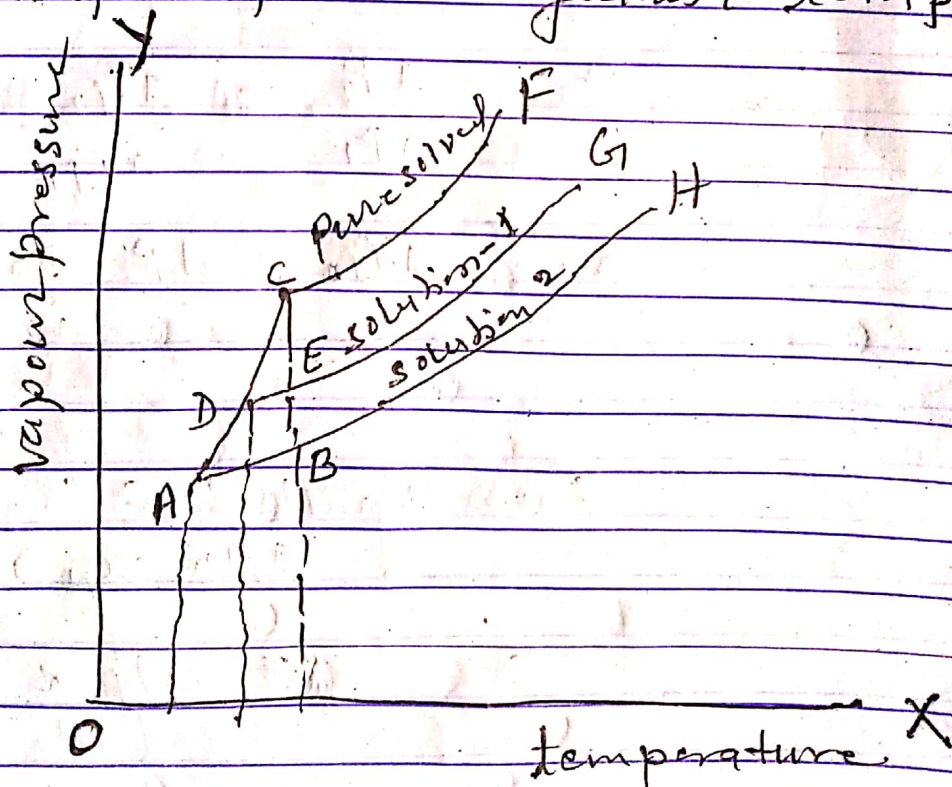 Y
vapour pressure
F
Pure solvent
G
H
C
E solution-1
solution 2
D
B
A
O
X
temperature